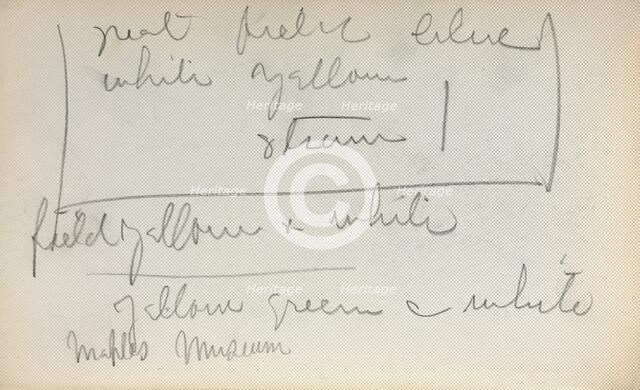 neat field blue
white yellow
Heritage Heritage
stream
Heritage Heritage
field yellow & white
Heritage Heritage
yellow green & white
Naples Museum